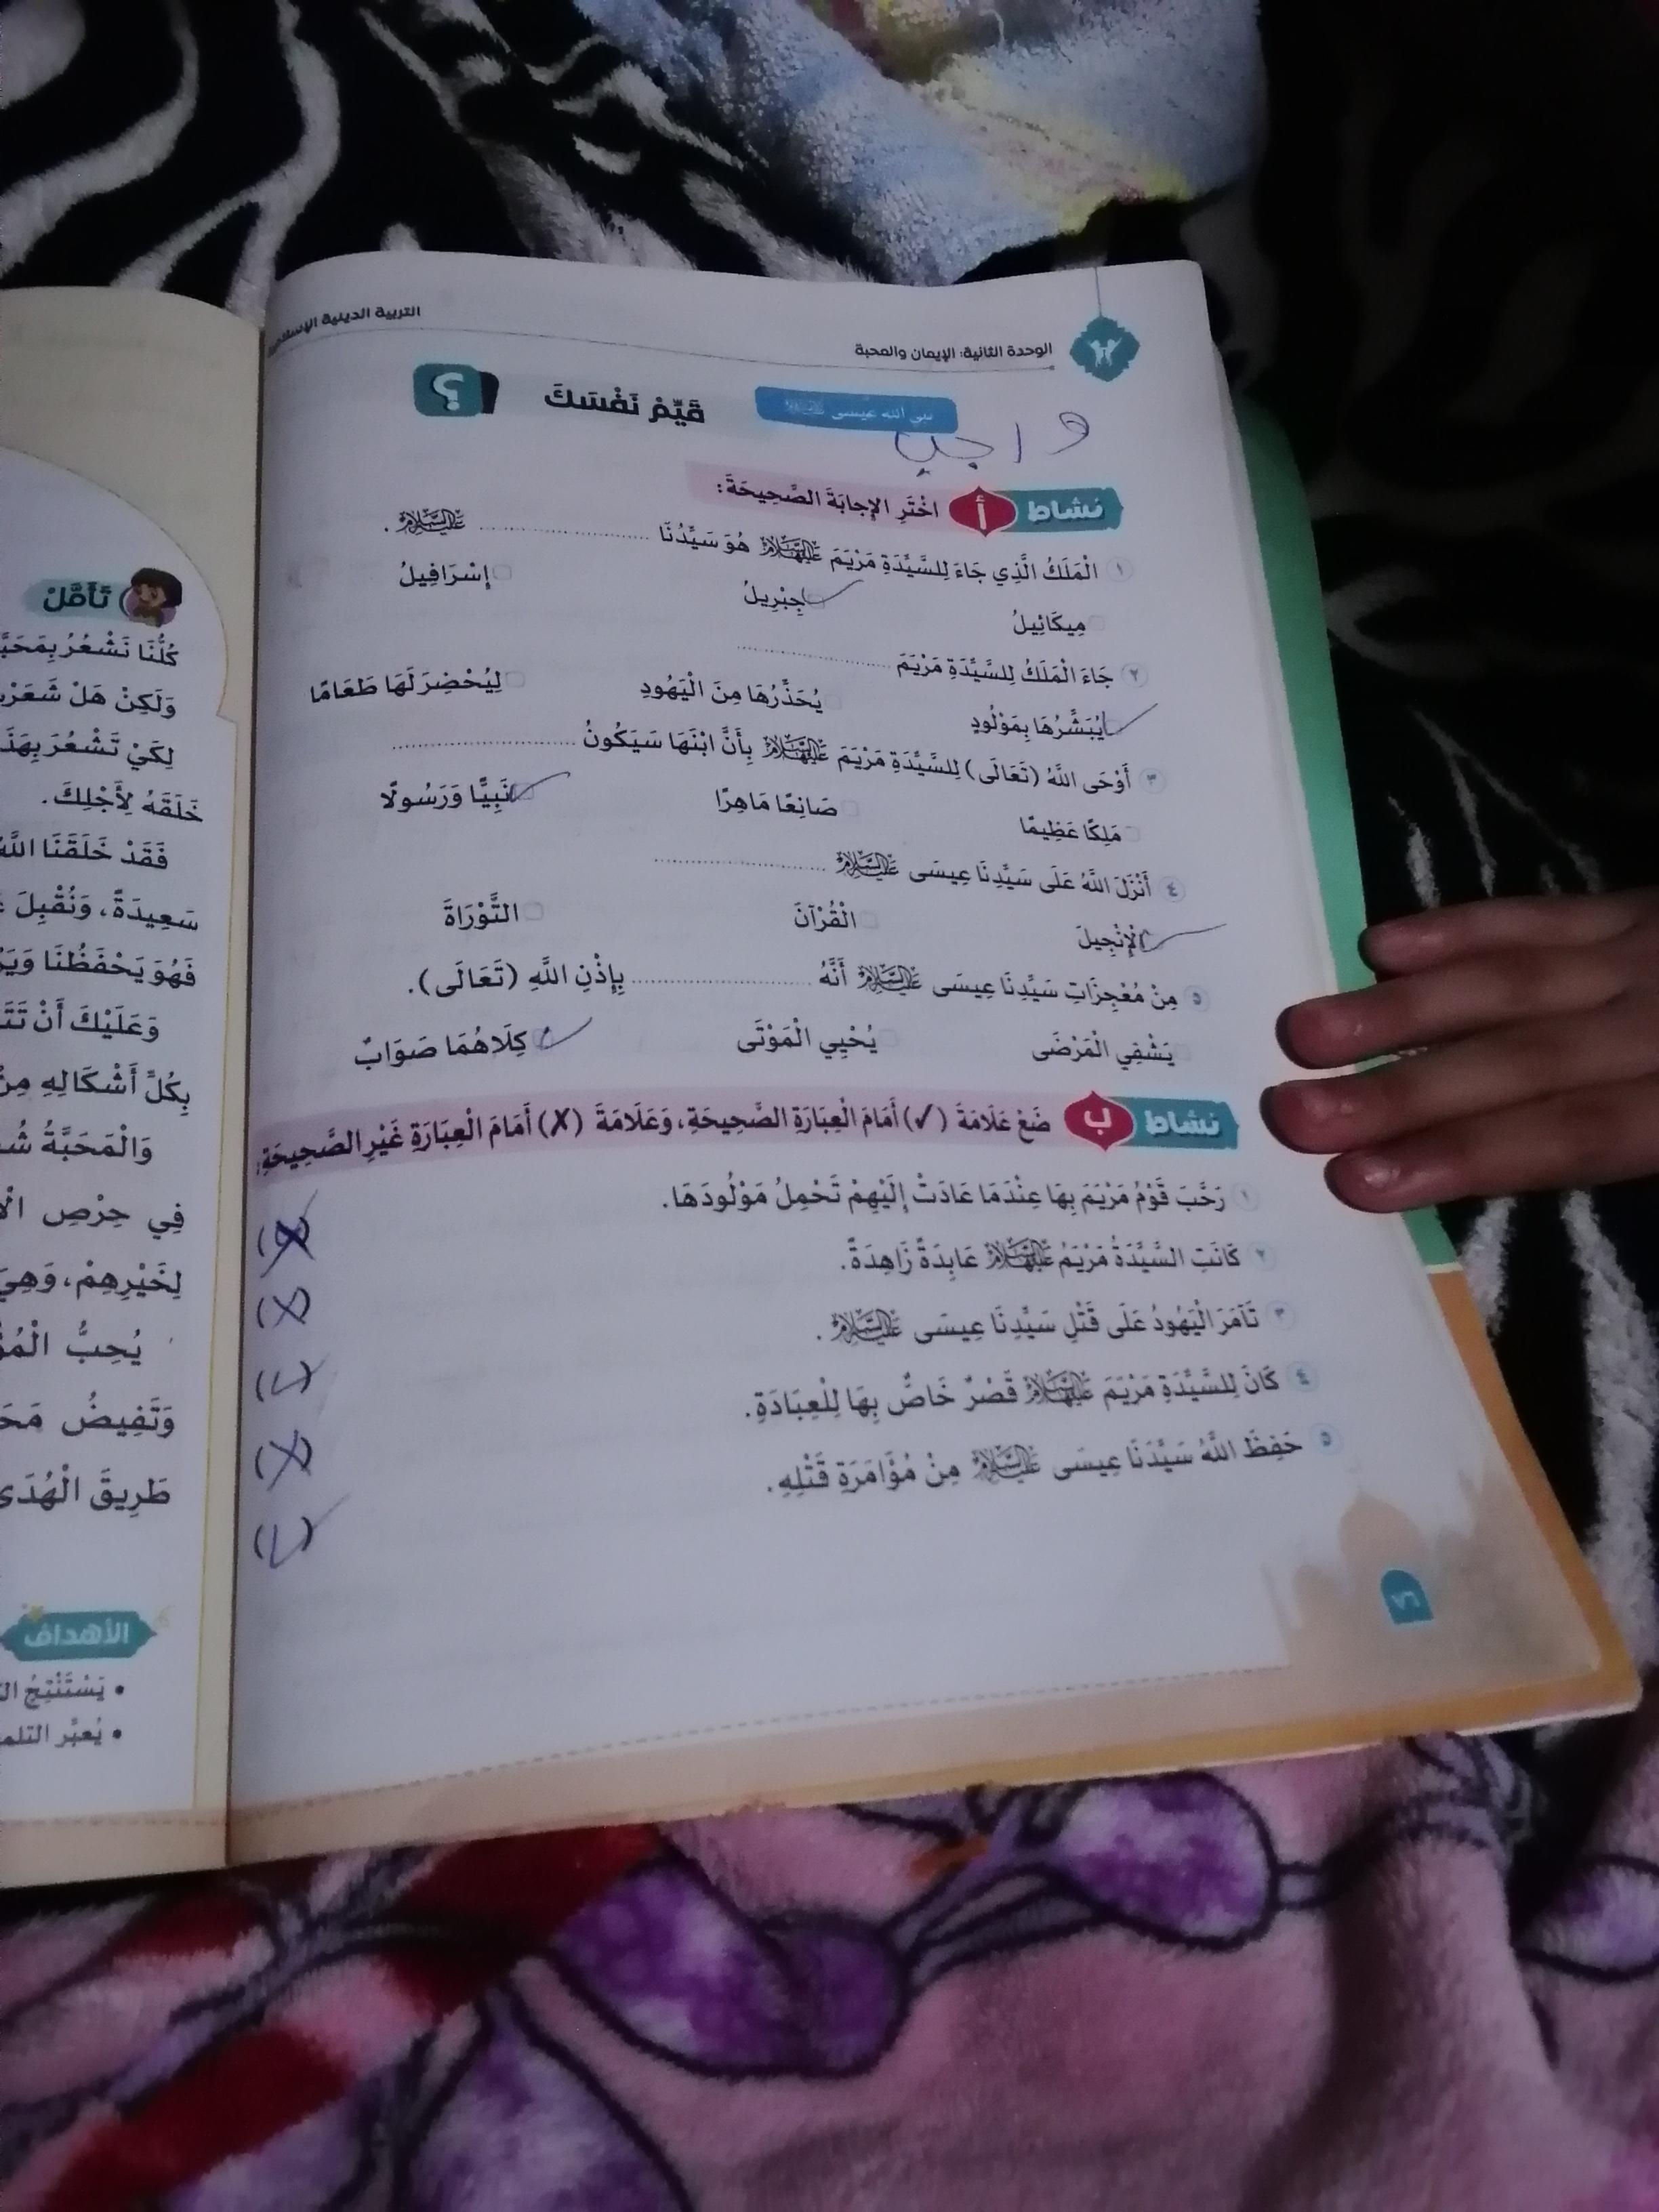 التربية الدينية الإسلامية
الوحدة الثانية: الإيمان والمحبة
نبي الله عيسى عليه السلام
قَيِّمْ نَفْسَكَ
؟
واجب
نشاط أ اخْتَرِ الإِجابَةَ الصَّحِيحَةَ:
١ الْمَلَكُ الَّذِي جَاءَ لِلسَّيِّدَةِ مَرْيَمَ عليها السلام هُوَ سَيِّدُنَا .................... عليه السلام.
مِيكَائِيلُ جِبْرِيلُ إِسْرَافِيلُ
٢ جَاءَ الْمَلَكُ لِلسَّيِّدَةِ مَرْيَمَ ....................
يُبَشِّرُهَا بِمَوْلُودٍ يُحَذِّرُهَا مِنَ الْيَهُودِ لِيُحْضِرَ لَهَا طَعَامًا
٣ أَوْحَى اللَّهُ (تَعَالَى) لِلسَّيِّدَةِ مَرْيَمَ عليها السلام بِأَنَّ ابْنَهَا سَيَكُونُ ....................
مَلِكًا عَظِيمًا صَانِعًا مَاهِرًا نَبِيًّا وَرَسُولًا
٤ أَنْزَلَ اللَّهُ عَلَى سَيِّدِنَا عِيسَى عليه السلام ....................
الْإِنْجِيلَ الْقُرْآنَ التَّوْرَاةَ
٥ مِنْ مُعْجِزَاتِ سَيِّدِنَا عِيسَى عليه السلام أَنَّهُ .................... بِإِذْنِ اللَّهِ (تَعَالَى).
يَشْفِي الْمَرْضَى يُحْيِي الْمَوْتَى كِلَاهُمَا صَوَابٌ
نشاط ب ضَعْ عَلَامَةَ (✓) أَمَامَ الْعِبَارَةِ الصَّحِيحَةِ، وَعَلَامَةَ (✗) أَمَامَ الْعِبَارَةِ غَيْرِ الصَّحِيحَةِ:
١ رَحَّبَ قَوْمُ مَرْيَمَ بِهَا عِنْدَمَا عَادَتْ إِلَيْهِمْ تَحْمِلُ مَوْلُودَهَا. (✗)
٢ كَانَتِ السَّيِّدَةُ مَرْيَمُ عليها السلام عَابِدَةً زَاهِدَةً. (✗)
٣ تَآمَرَ الْيَهُودُ عَلَى قَتْلِ سَيِّدِنَا عِيسَى عليه السلام. (✓)
٤ كَانَ لِلسَّيِّدَةِ مَرْيَمَ عليها السلام قَصْرٌ خَاصٌّ بِهَا لِلْعِبَادَةِ. (✗)
٥ حَفِظَ اللَّهُ سَيِّدَنَا عِيسَى عليه السلام مِنْ مُؤَامَرَةِ قَتْلِهِ. (✓)
تَأَمَّلْ
كُلُّنَا نَشْعُرُ
وَلَكِنْ هَلْ
لِكَيْ تَشْعُرَ
خَلَقَهُ لِأَجْلِكَ.
فَقَدْ خَلَقَنَا
سَعِيدَةً، وَنُقْبِلَ
فَهُوَ يَحْفَظُنَا
وَعَلَيْكَ أَنْ
بِكُلِّ أَشْكَالِهِ
وَالْمَحَبَّةُ
فِي حِرْصِ
لِخَيْرِهِمْ، وَهِيَ
يُحِبُّ
وَتَفِيضُ
طَرِيقَ
الأهداف
• يَسْتَنْتِجُ
• يُعبِّر